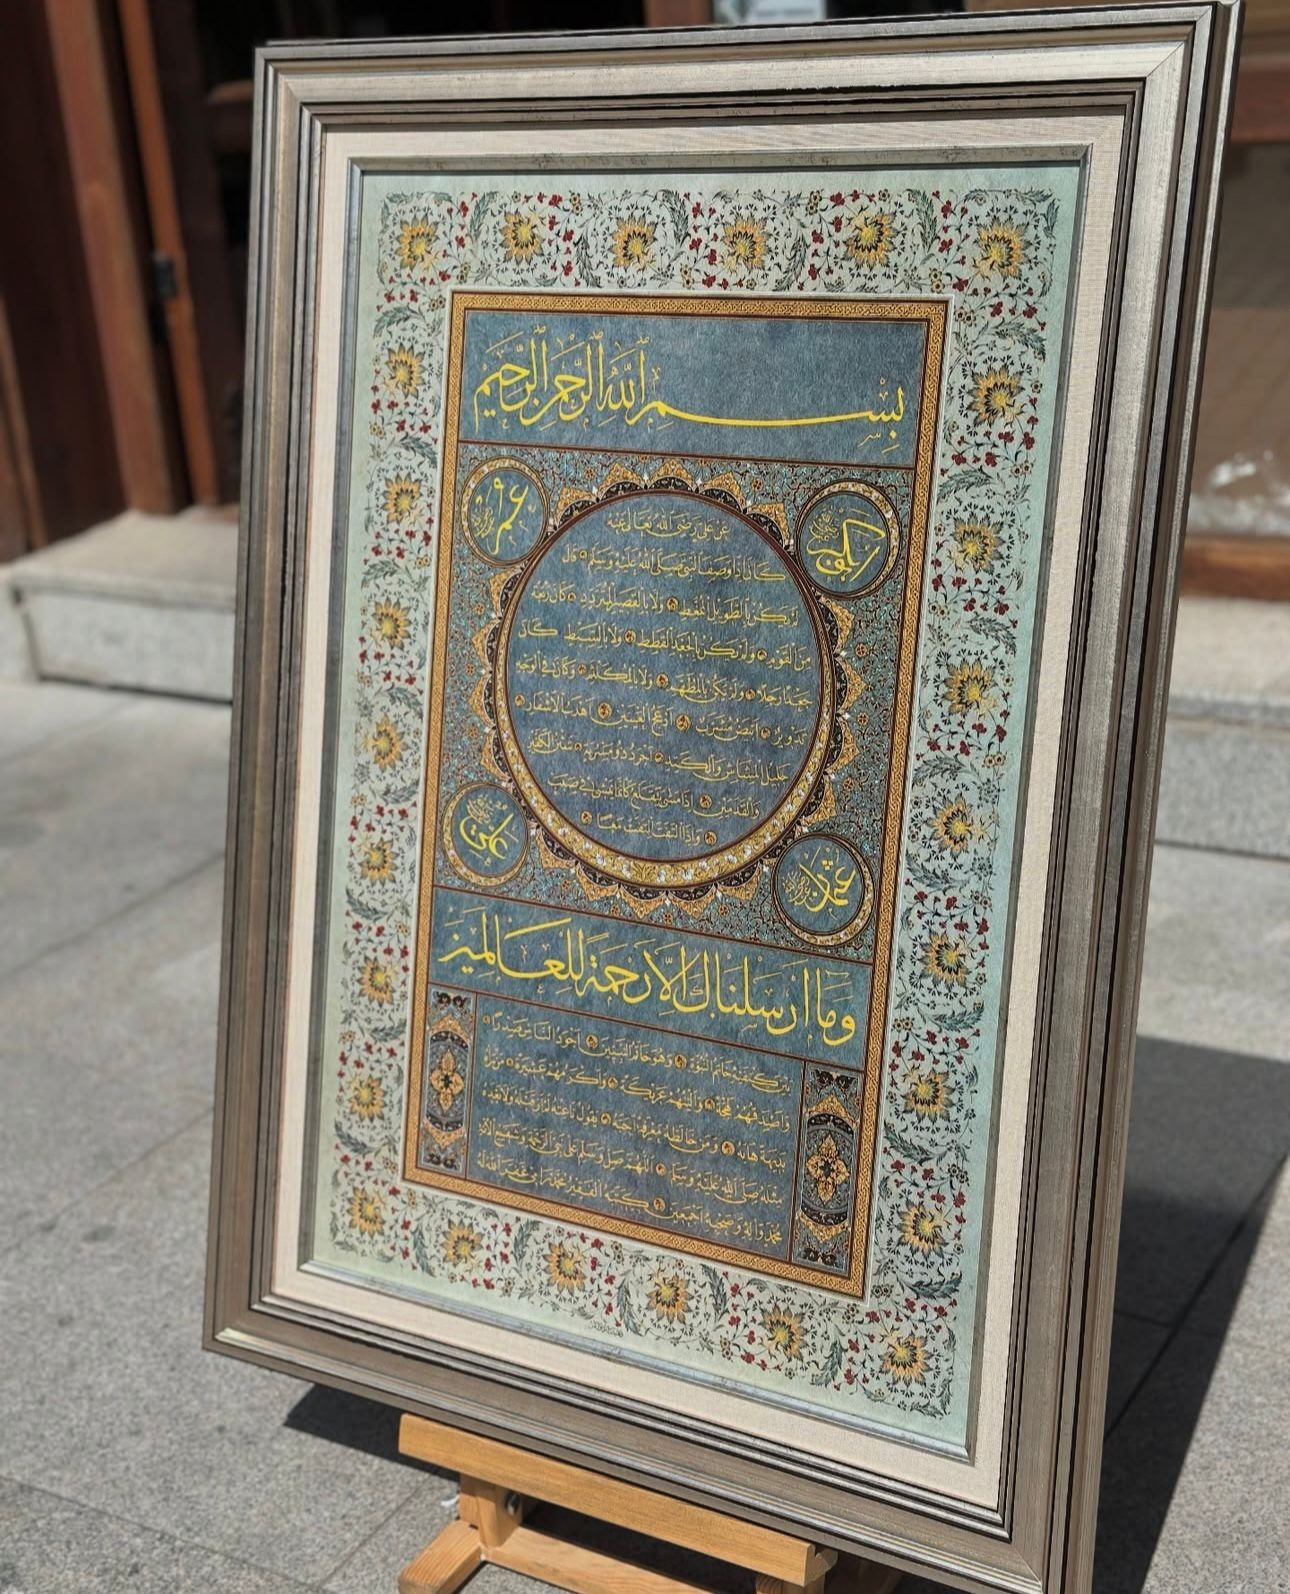 بِسْمِ اللهِ الرَّحْمٰنِ الرَّحِيمِ
ابو بكر
عمر
عن علي رضي الله تعالى عنه
كان اذا وصف النبي صلى الله عليه وسلم قال
لم يكن بالطويل الممغط ولا بالقصير المتردد كان ربعة
من القوم ولم يكن بالجعد القطط ولا بالسبط كان
جعدا رجلا ولم يكن بالمطهم ولا بالمكلثم وكان في الوجه
تدوير ابيض مشرب ادعج العينين اهدب الاشفار
جليل المشاش والكتد اجرد ذو مسربة شثن الكفين
والقدمين اذا مشى يتقلع كانما يمشي في صبب
واذا التفت التفت معا
عثمان
علي
وَمَا أَرْسَلْنَاكَ إِلَّا رَحْمَةً لِلْعَالَمِينَ
بين كتفيه خاتم النبوة وهو خاتم النبيين اجود الناس صدرا
واصدقهم لهجة والينهم عريكة واكرمهم عشيرة من رآه
بديهة هابه ومن خالطه معرفة احبه يقول ناعته لم ار قبله ولا بعده
مثله صلى الله عليه وسلم اللهم صل وسلم على نبي الرحمة وشفيع الامة
محمد وآله وصحبه اجمعين كتبه الفقير محمد